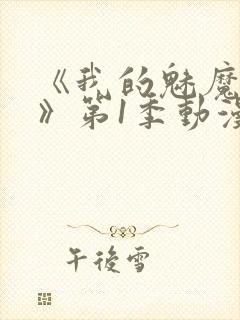 《我的魅魔
》第1季動漫
午後雪